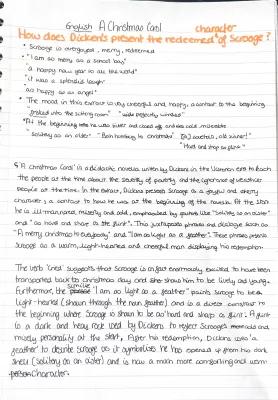 English A Christmas Carol
character
How does Dickens present the redeemed of Scrooge?
• Scrooge is overjoyed, merry, redeemed
• "I am so merry as a school boy"
"a happy new year to all the world"
"it was a splendid laugh"
as happy as an angel"
• The mood in this extract is very cheerful and happy, a contrast to the beginning
into the sitting room" "perfectly winded"
• At the beginning he was bitter and closed off and was cold miserable
solitary as an oyster" "Bah humbug to christmas" "[A] covetous, old sinner!"
"Hard and sharp as flint"
'A Christmas Carol' is a didactic novella written by Dickens in the Victorian era to teach
the people at the time about the severity of poverty and the ignorance of wealthier
people at the time. In the extract, Dickens presents Scrooge as a joyful and cheery
character; a contrast to how he was at the beginning of the novella. At the start
he is ill-mannered, miserly and odd, emphasised by quotes like "Solitary as an oyster"
and "as hard and sharp as flint". This juxtaposes phrases and dialogue such as
"A merry christmas to everybody" and "I am as light as a feather". These phrases present
Scrooge as a warm, light-hearted and cheerful man displaying his redemption.
The verb 'cried' suggests that Scrooge is in fact enormously excited to have been
transported back to christmas day and she show him to be lively and young.
Furthermore, the simile "I am as light as a feather" paints scrooge to be
light-hearted (shown through the noun feather) and is a direct contrast to
the beginning where Scrooge is shown to be as 'hard and sharp as flint'. Flint
is a dark and heavy rock used by Dickens to reflect Scrooge's and
misery personality at the start. After his redemption, Dickens uses 'a
feather' to describe scrooge as it symbolises he has opened up from his dark
shell (solitary as an oyster) and is now a much more comforting and warm
person character.